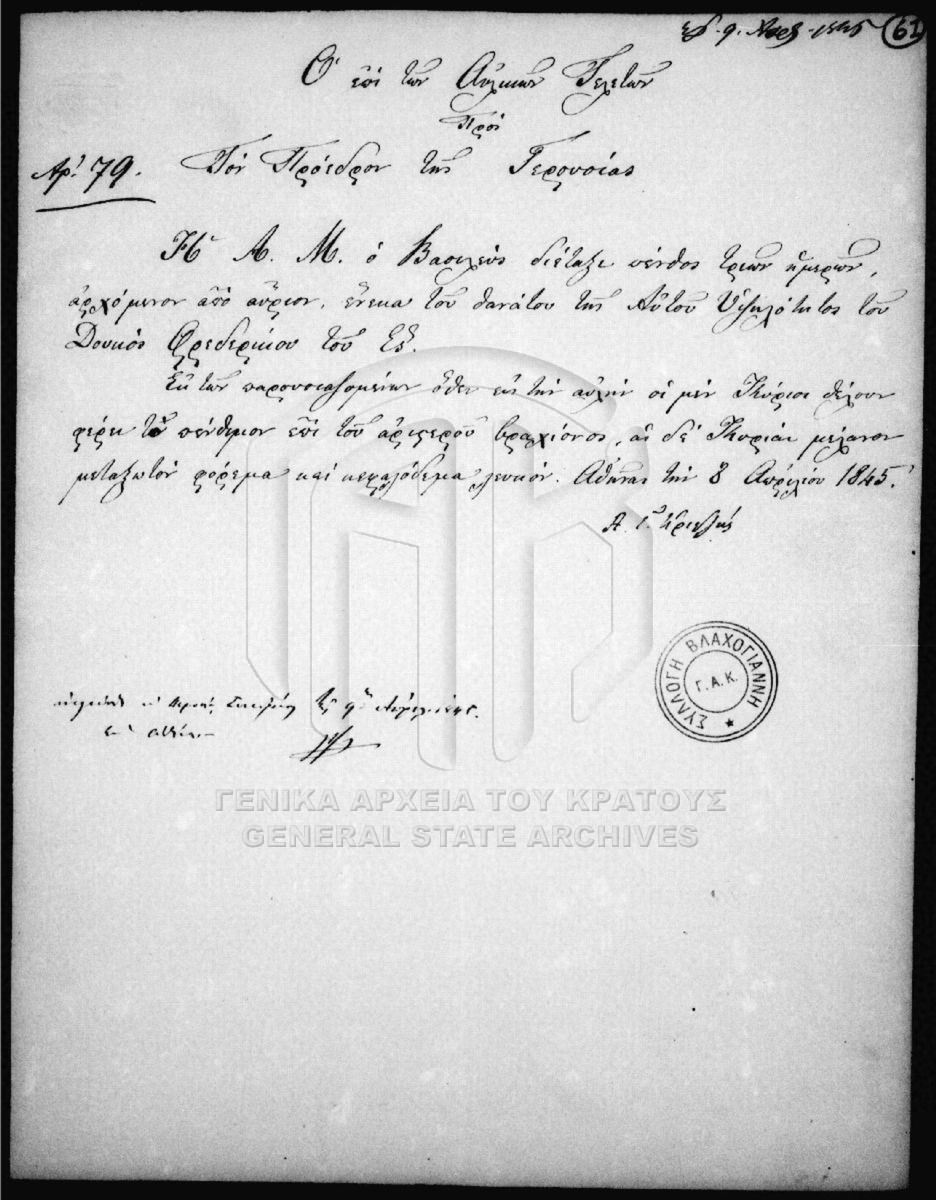 9. 1845 61
Ὁ ἐπὶ τῶν Αὐλικῶν Τελετῶν
Πρὸς
Αρ. 79. Τὸν Πρόεδρον τῆς Γερουσίας
Ἡ Α. Μ. ὁ Βασιλεὺς διέταξε πένθος τριῶν ἡμερῶν,
ἀρχόμενον ἀπὸ αὔριον, ἕνεκα τοῦ θανάτου τῆς Αὐτοῦ Ὑψηλότητος τοῦ
Δουκὸς Φρεδερίκου τοῦ
Ἐκ τῶν παρουσιαζομένων ὅθεν εἰς τὴν αὐλὴν οἱ μὲν Κύριοι θέλουν
φέρει τὸ πένθιμον ἐπὶ τοῦ ἀριστεροῦ βραχίονος, αἱ δὲ Κυρίαι μέλανον
μεταξωτὸν φόρεμα καὶ κεφαλόδεμα λευκόν. Ἀθήνας τὴν 8 Ἀπριλίου 1845.
Α. Γ. Κριεζῆς
τῇ 9 Ἀπριλ. 1845.
ΣΥΛΛΟΓΗ ΒΛΑΧΟΓΙΑΝΝΗ
Γ.Α.Κ.
ΓΕΝΙΚΑ ΑΡΧΕΙΑ ΤΟΥ ΚΡΑΤΟΥΣ
GENERAL STATE ARCHIVES